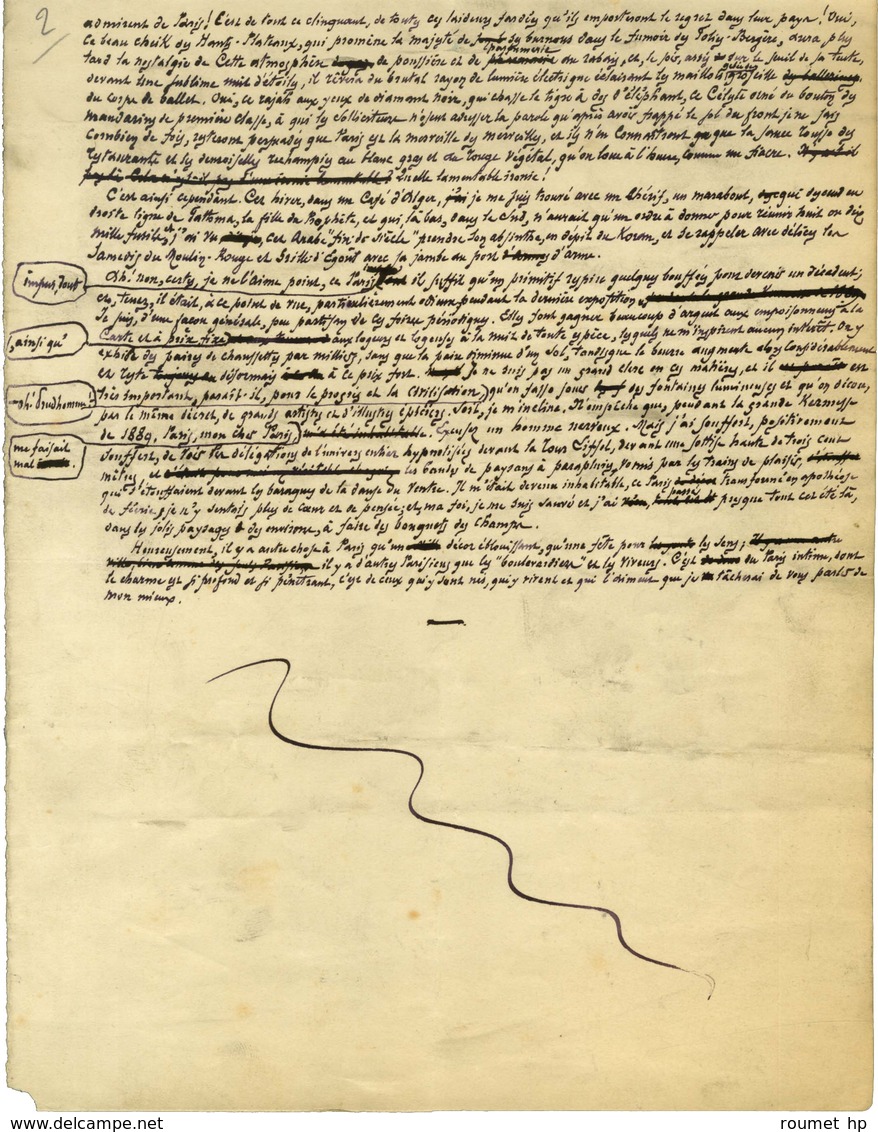 2
admirent de Paris! C'est de tout ce clinquant, de toutes ces laideurs fardées qu'ils emporteront le regret dans leur pays! Oui,
ce beau cheik des Hauts-Plateaux, qui promène la majesté de son burnous dans le fumoir des Folies-Bergère, aura plus
tard la nostalgie de cette atmosphère de poussière et de parfumerie au rabais, et, le soir, assis sur le seuil de sa tente,
devant une sublime nuit d'étoiles, il rêvera du brutal rayon de lumière électrique éclairant les maillots groseille
du corps de ballet. Oui, ce rajah aux yeux de diamant noir, qui chasse le tigre à dos d'éléphant, ce Céleste orné du bouton des
mandarins de première classe, à qui les solliciteurs n'osent adresser la parole qu'après avoir frappé le sol du front, je ne sais
combien de fois, resteront persuadés que Paris est la merveille des merveilles, et ils n'en connaîtront que la sauce rousse des
restaurants et les demoiselles rechampies au blanc gras et au rouge végétal, qu'on loue à l'heure, comme un fiacre.
Quelle lamentable ironie!
C'est ainsi cependant. Cet hiver, dans un Café d'Alger, je me suis trouvé avec un Chérif, un marabout, qui descend en
droite ligne de Fathma, la fille du Prophète, et qui, là-bas, dans le Sud, n'aurait qu'un ordre à donner pour réunir huit ou dix
mille fusils, et j'ai vu cet Arabe "fin de siècle" prendre son absinthe, en dépit du Koran, et se rappeler avec délices les
Samedis du Moulin-Rouge et Grille d'Egout avec sa jambe au port d'arme.
Oh! non, certes, je ne l'aime point, ce Paris impur, dont il suffit qu'un primitif respire quelques bouffées pour devenir un décadent;
et, tenez, il était, à ce point de vue, particulièrement odieux pendant la dernière exposition
Je suis, d'une façon générale, peu partisan de ces foires périodiques. Elles font gagner beaucoup d'argent aux empoisonneurs à la
Carte et à prix fixe, ainsi qu' aux logeurs et logeuses à la nuit de toute espèce, lesquels ne m'inspirent aucun intérêt. On y
exhibe des paires de chaussettes par milliers, sans que la paire diminue d'un sol, tandis que le beurre augmente considérablement
et reste désormais à ce prix fort. Je ne suis pas un grand clerc en ces matières, et il est
très important, paraît-il, pour le progrès et la civilisation, oh! Prudhomme! qu'on fasse jouer des fontaines lumineuses et qu'on décore,
par le même décret, de grands artistes et d'illustres épiciers. Soit, je m'incline. N'empêche que, pendant la grande Kermesse
de 1889, Paris, mon cher Paris me faisait mal. Excusez un homme nerveux. Mais j'ai souffert, positivement
souffert, de voir les délégations de l'univers entier hypnotisées devant la tour Eiffel, devant une sottise haute de trois cent
mètres, et les bandes de paysans à parapluies, vomis par les trains de plaisir,
qui s'étouffaient devant les baraques de la danse du ventre. Il m'était devenu inhabitable, ce Paris transformé en apothéose
de féerie; je n'y sentais plus de cœur et de pensée; et, ma foi, je me suis sauvé et j'ai passé presque tout cet été là,
dans les jolis paysages des environs, à faire des bouquets des champs.
Heureusement, il y a autre chose à Paris qu'un décor éblouissant, qu'une fête pour les sens;
il y a d'autres Parisiens que les "boulevardiers" et les viveurs. C'est du Paris intime, dont
le charme est si profond et si pénétrant, c'est de ceux qui y sont nés, qui y vivent et qui l'aiment que je tâcherai de vous parler de
mon mieux.
roumet hp